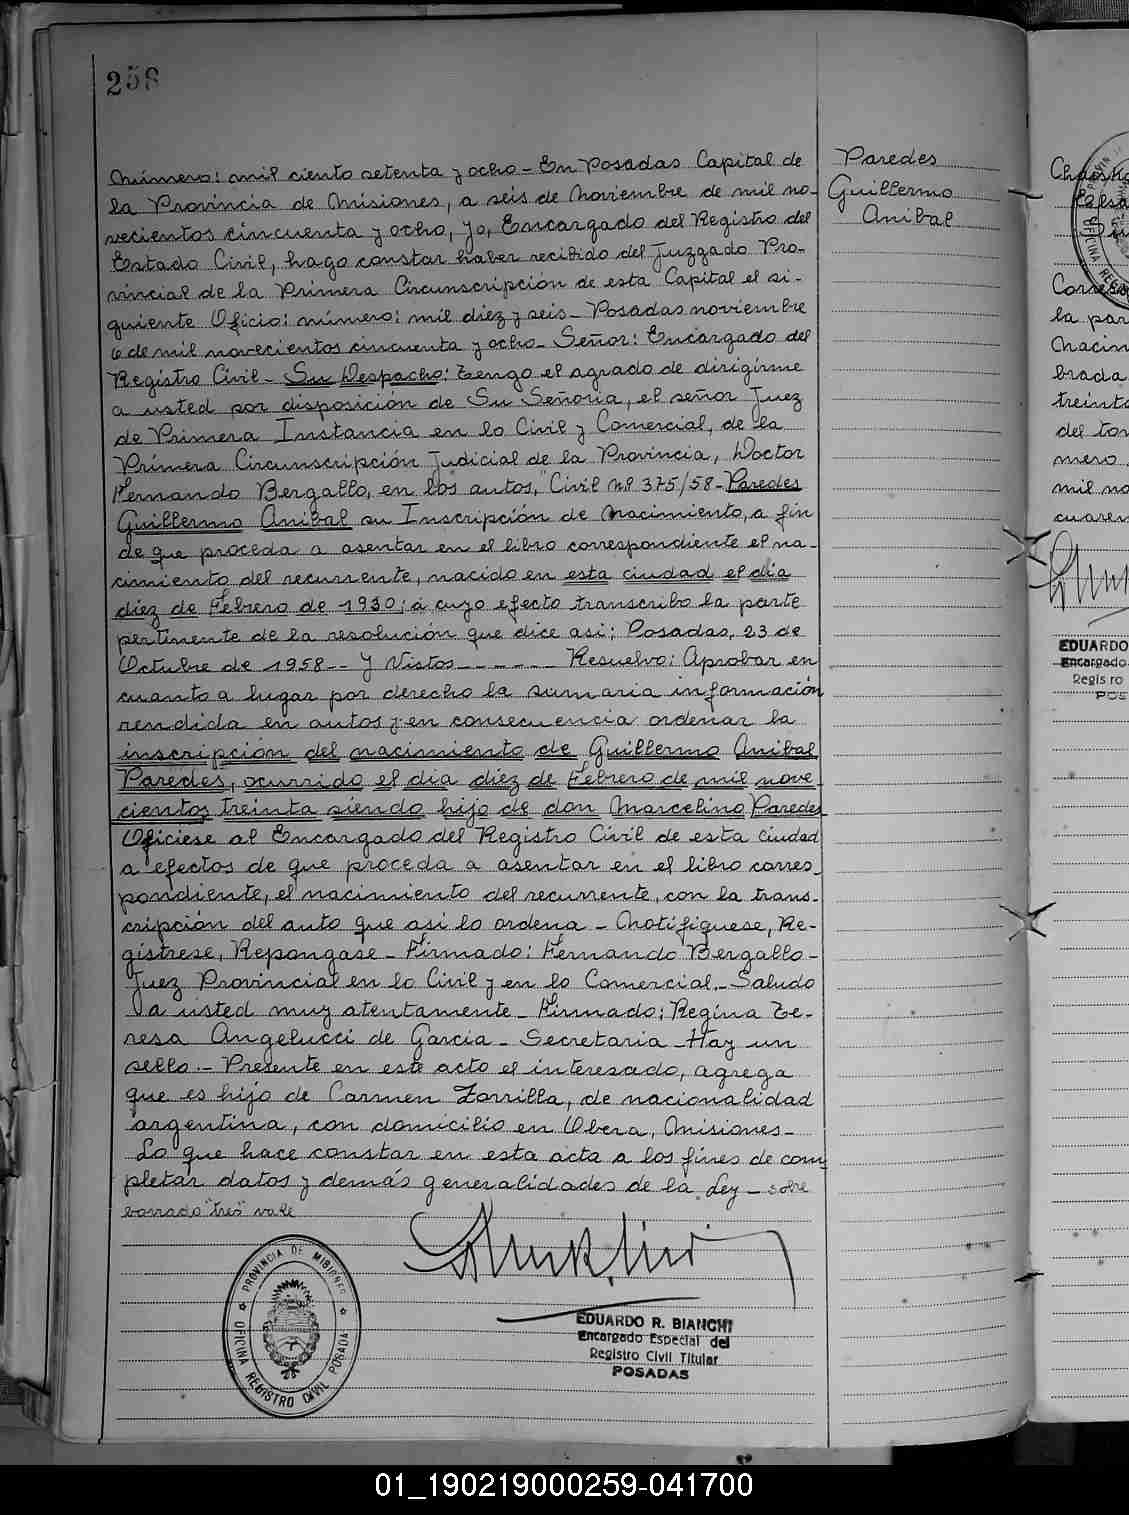 258
Número: mil ciento setenta y ocho - En Posadas Capital de
la Provincia de Misiones, a seis de Noviembre de mil no-
vecientos cincuenta y ocho, yo, Encargado del Registro del
Estado Civil, hago constar haber recibido del Juzgado Pro-
vincial de la Primera Circunscripción de esta Capital el si-
guiente Oficio: número: mil diez y seis - Posadas noviembre
6 de mil novecientos cincuenta y ocho - Señor: Encargado del
Registro Civil - Su Despacho: Tengo el agrado de dirigirme
a usted por disposición de Su Señoria, el señor Juez
de Primera Instancia en lo Civil y Comercial, de la
Primera Circunscripción Judicial de la Provincia, Doctor
Fernando Bergallo, en los autos, "Civil nº 375/58 - Paredes
Guillermo Anibal su Inscripción de Nacimiento, a fin
de que proceda a asentar en el libro correspondiente el na-
cimiento del recurrente, nacido en esta ciudad el dia
diez de Febrero de 1930; a cuyo efecto transcribo la parte
pertinente de la resolución que dice asi: Posadas, 23 de
Octubre de 1958 -- Y Vistos ------ Resuelvo: Aprobar en
cuanto a lugar por derecho la sumaria información
rendida en autos y en consecuencia ordenar la
inscripción del nacimiento de Guillermo Anibal
Paredes, ocurrido el dia diez de Febrero de mil nove
cientos treinta siendo hijo de don Marcelino Paredes
Oficiese al Encargado del Registro Civil de esta ciudad
a efectos de que proceda a asentar en el libro corres-
pondiente, el nacimiento del recurrente, con la trans-
cripción del auto que asi lo ordena - Notifiquese, Re-
gistrese, Repongase - Firmado: Fernando Bergallo -
Juez Provincial en lo Civil y en lo Comercial. - Saludo
a usted muy atentamente - Firmado: Regina Te-
resa Angelucci de Garcia - Secretaria - Hay un
sello. - Presente en este acto el interesado, agrega
que es hijo de Carmen Zorrilla, de nacionalidad
argentina, con domicilio en Obera, Misiones -
Lo que hace constar en esta acta a los fines de com-
pletar datos y demás generalidades de la Ley - sobre
borrado "tres" vale
PROVINCIA DE MISIONES
OFICINA REGISTRO CIVIL POSADAS
EDUARDO R. BIANCHI
Encargado Especial del
Registro Civil Titular
POSADAS
Paredes
Guillermo
Anibal
la par
Nacim
brada
treinta
mero
mil no
cuaren
EDUARDO
Encargado
Regis ro
POS
01_190219000259-041700